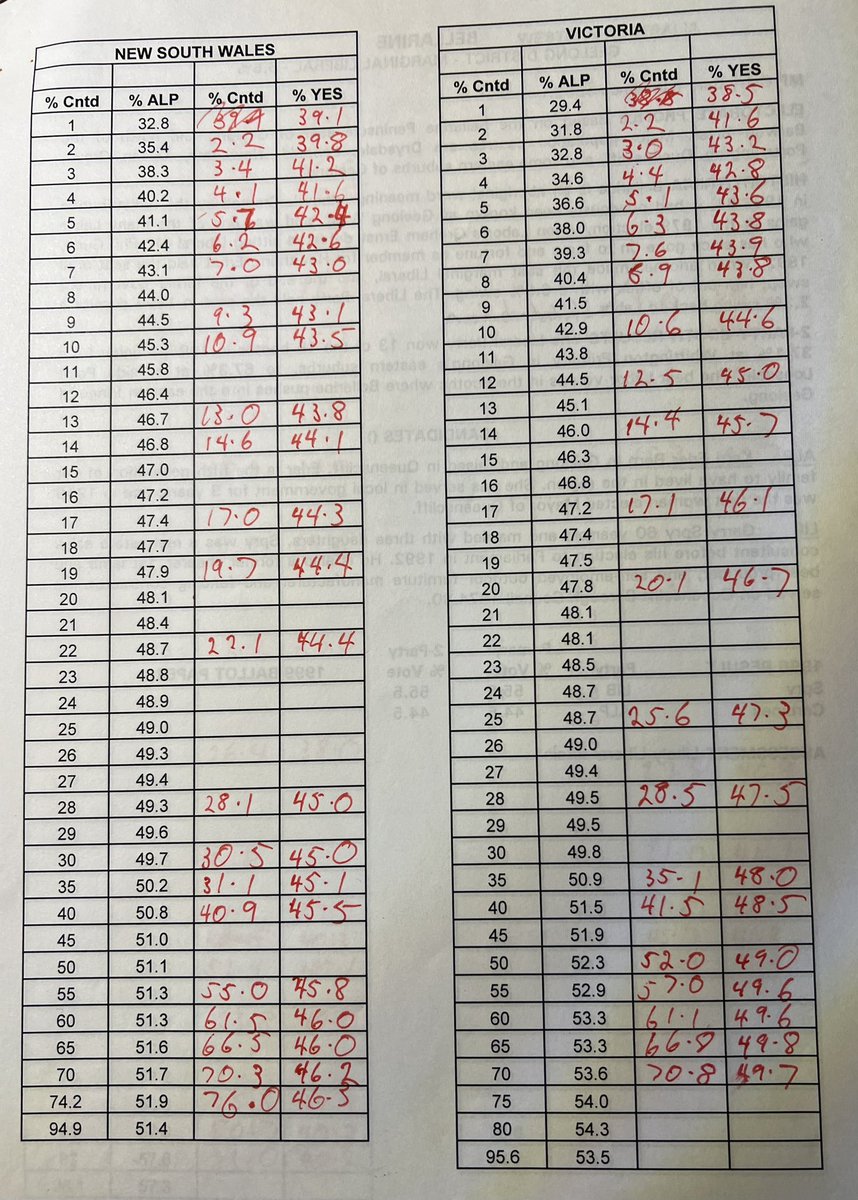 NEW SOUTH WALES
% Cntd % ALP % Cntd % YES
1 32.8 39.1
2 35.4 2.2 39.8
3 38.3 3.4 41.2
4 40.2 4.1 41.6
5 41.1 5.7 42.4
6 42.4 6.2 42.6
7 43.1 7.0 43.0
8 44.0
9 44.5 9.3 43.1
10 45.3 10.9 43.5
11 45.8
12 46.4
13 46.7 13.0 43.8
14 46.8 14.6 44.1
15 47.0
16 47.2
17 47.4 17.0 44.3
18 47.7
19 47.9 19.7 44.4
20 48.1
21 48.4
22 48.7 22.1 44.4
23 48.8
24 48.9
25 49.0
26 49.3
27 49.4
28 49.3 28.1 45.0
29 49.6
30 49.7 30.5 45.0
35 50.2 31.1 45.1
40 50.8 40.9 45.5
45 51.0
50 51.1
55 51.3 55.0 45.8
60 51.3 61.5 46.0
65 51.6 66.5 46.0
70 51.7 70.3 46.2
74.2 51.9 76.0 46.3
94.9 51.4
VICTORIA
% Cntd % ALP % Cntd % YES
1 29.4 38.5
2 31.8 2.2 41.6
3 32.8 3.0 43.2
4 34.6 4.4 42.8
5 36.6 5.1 43.6
6 38.0 6.3 43.8
7 39.3 7.6 43.9
8 40.4 8.9 43.8
9 41.5
10 42.9 10.6 44.6
11 43.8
12 44.5 12.5 45.0
13 45.1
14 46.0 14.4 45.7
15 46.3
16 46.8
17 47.2 17.1 46.1
18 47.4
19 47.5
20 47.8 20.1 46.7
21 48.1
22 48.1
23 48.5
24 48.7
25 48.7 25.6 47.3
26 49.0
27 49.4
28 49.5 28.5 47.5
29 49.5
30 49.8
35 50.9 35.1 48.0
40 51.5 41.5 48.5
45 51.9
50 52.3 52.0 49.0
55 52.9 57.0 49.6
60 53.3 61.1 49.6
65 53.3 66.8 49.8
70 53.6 70.8 49.7
75 54.0
80 54.3
95.6 53.5